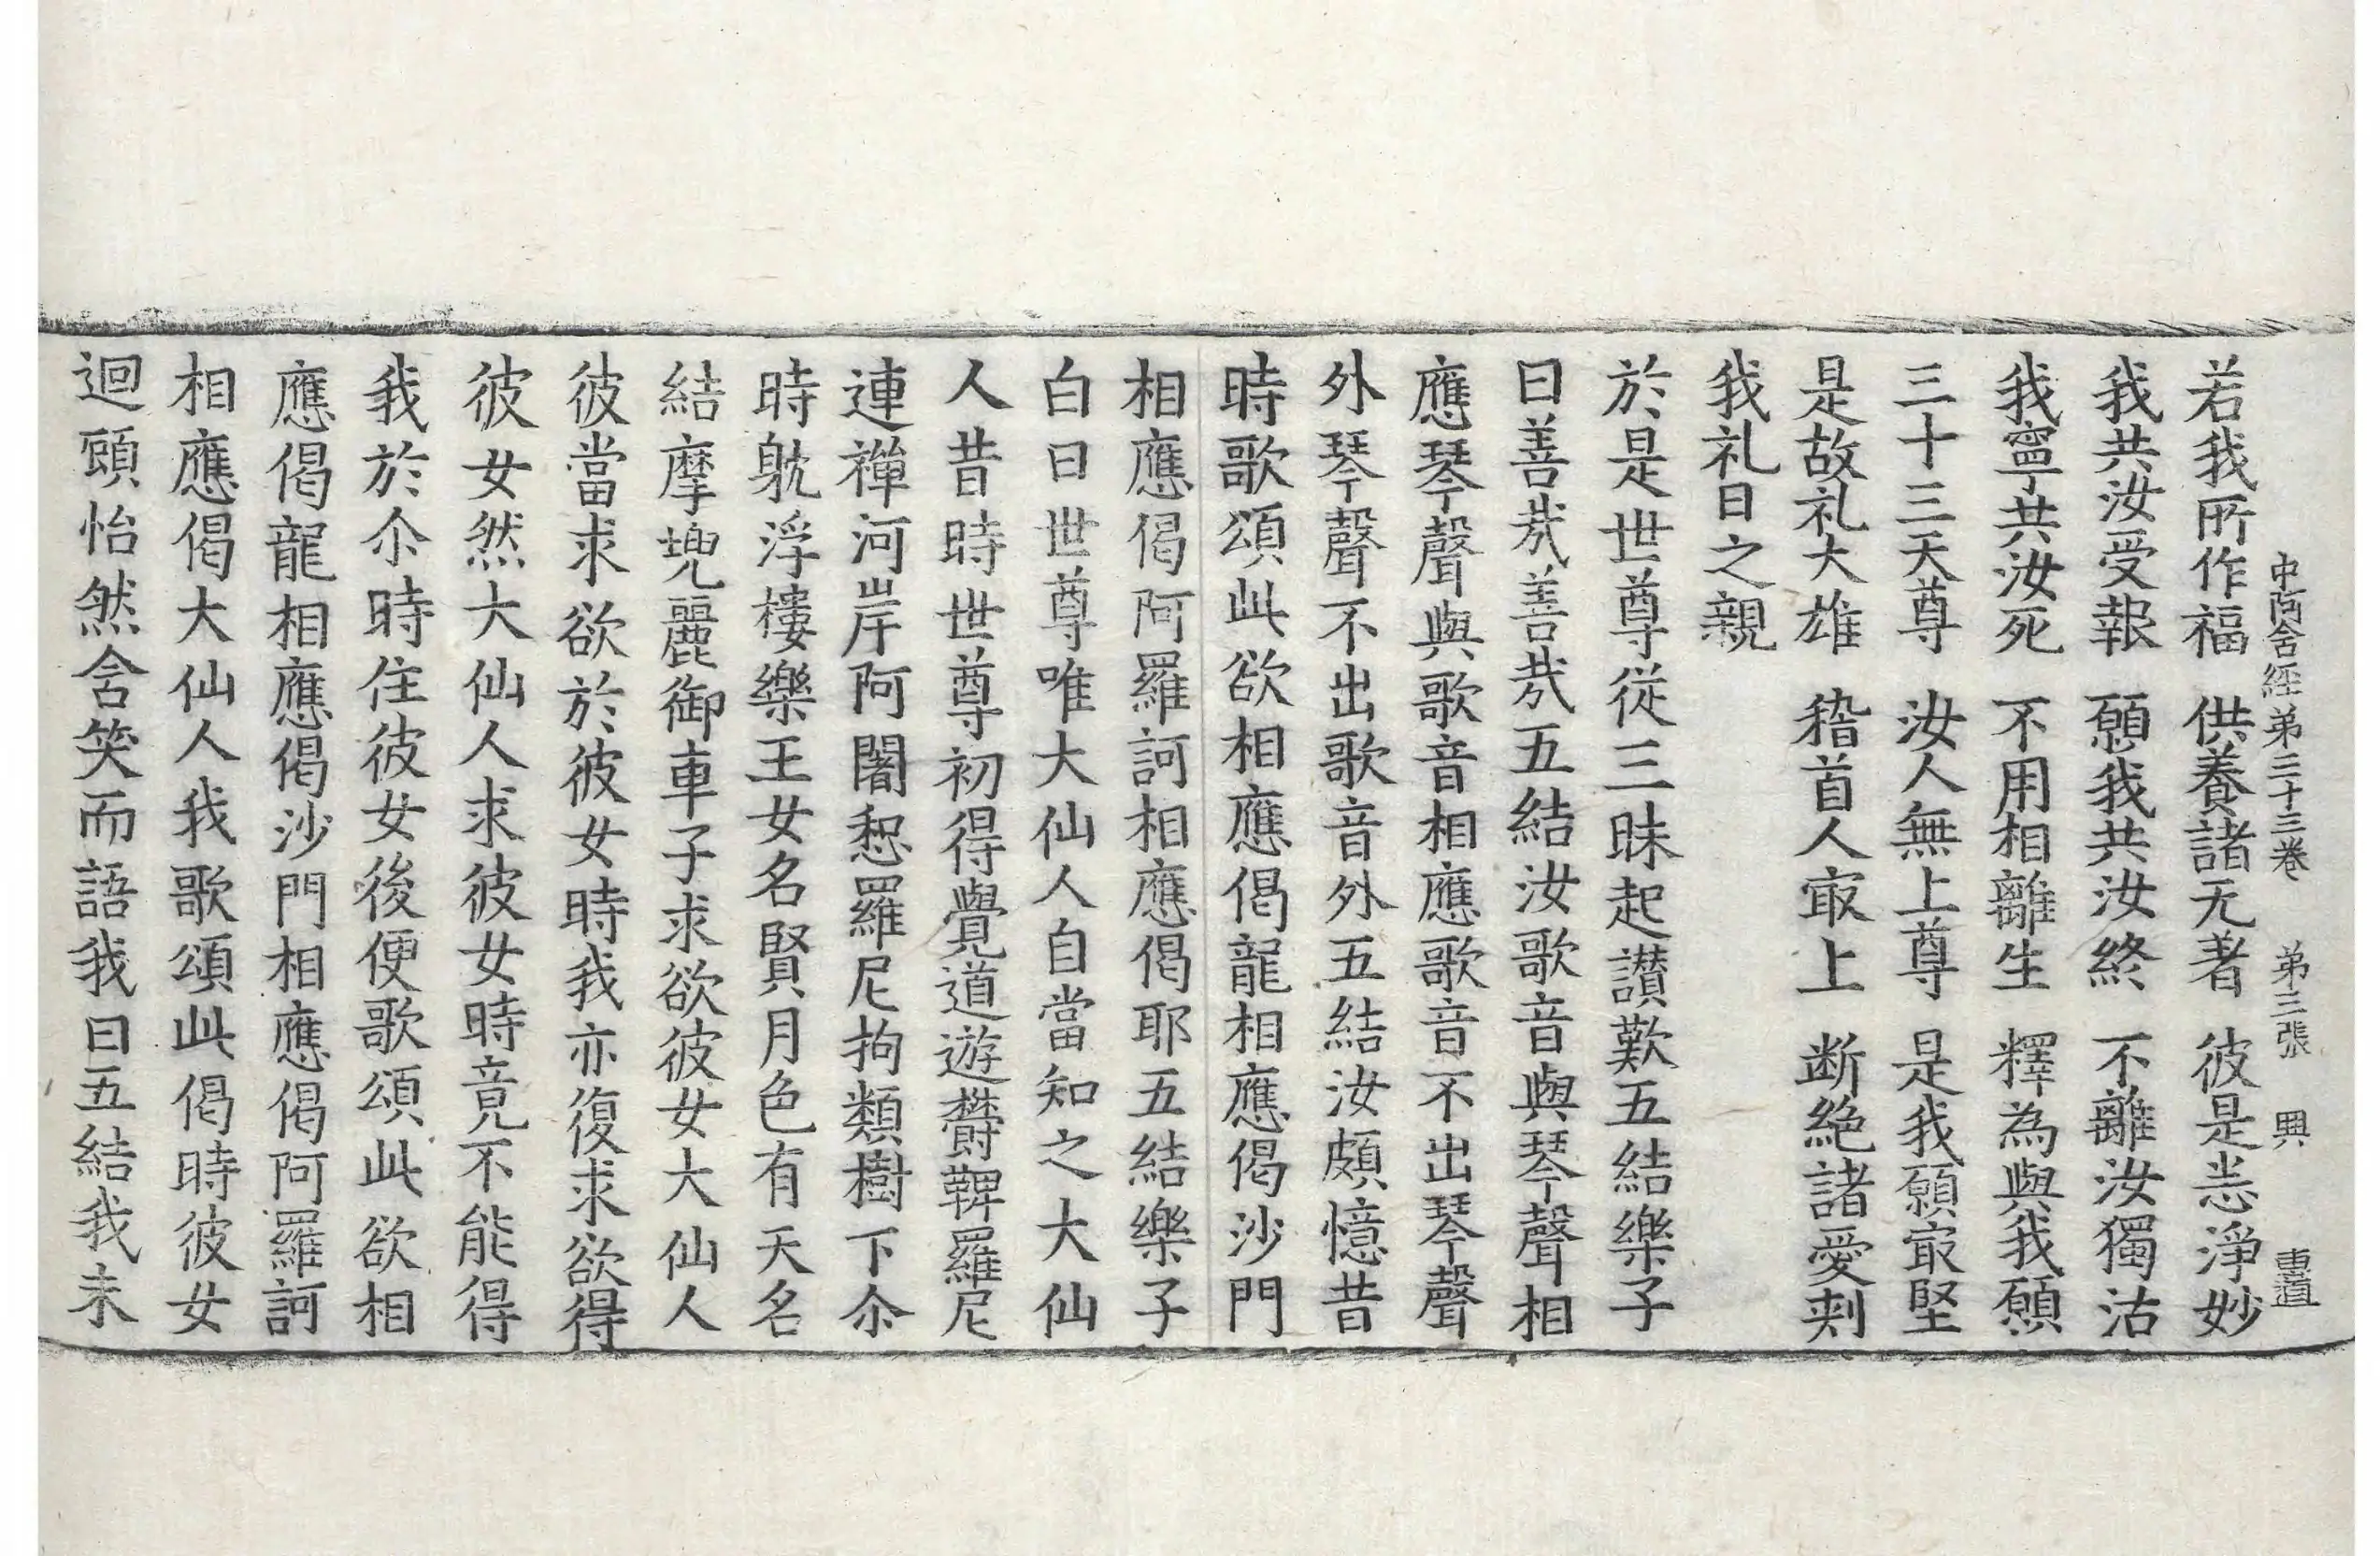 中阿含經第三十三卷 第三張 興 惠道
若我所作福 供養諸无著 彼是恙淨妙
我共汝受報 願我共汝終 不離汝獨沽
我寧共汝死 不用相離生 釋為與我願
三十三天尊 汝人無上尊 是我願㝡堅
是故礼大雄 稽首人㝡上 断絶諸愛刾
我礼日之親
於是世尊從三昧起讃歎五結樂子
曰善㢤善㢤五結汝歌音與琴聲相
應琴聲與歌音相應歌音不出琴聲
外琴聲不出歌音外五結汝頗憶昔
時歌頌此欲相應偈龍相應偈沙門
相應偈阿羅訶相應偈耶五結樂子
白曰世尊唯大仙人自當知之大仙
人昔時世尊初得覺道遊欝鞞羅尼
連禪河岸阿闍惒羅尼拘類樹下尒
時躭浮樓樂王女名賢月色有天名
結摩兜麗御車子求欲彼女大仙人
彼當求欲於彼女時我亦復求欲得
彼女然大仙人求彼女時竟不能得
我於尒時住彼女後便歌頌此欲相
應偈龍相應偈沙門相應偈阿羅訶
相應偈大仙人我歌頌此偈時彼女
迴頭怡然含笑而語我曰五結我未